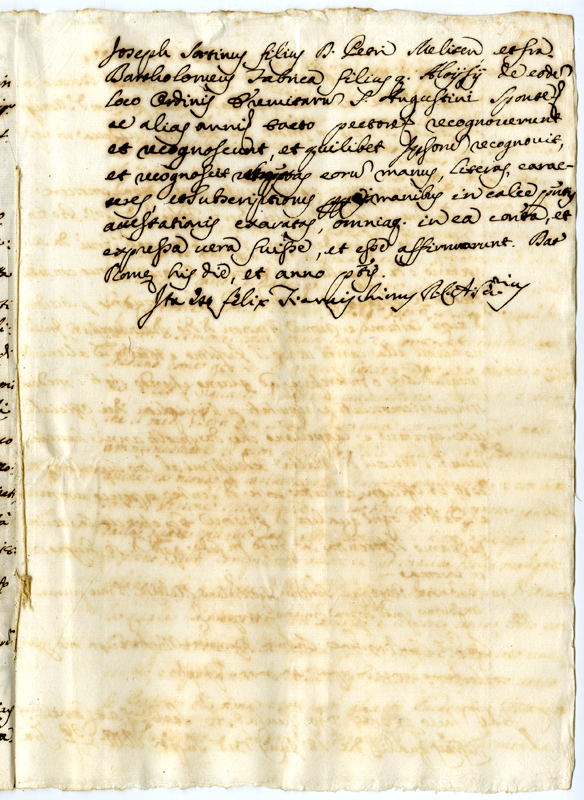 Joseph Sortinus filius D. Petri Meliten et fra
Bartholomeus Fabrica filius q. Aloysij de eode
loco Ordinis Eremitaru S. Augustini sponte
ac alias anni tacto pectore recognoverunt
et recognoscunt, et quilibet ipsoru recognovit,
et recognoscit eoru manus, literas, carac-
teres et subscriptiones manibus in calce
attestationis exaratas, omniaq. in ea conta, et
expressa vera fuisse, et esse affirmarunt. Dat
Rome his die, et anno
Ita est Felix